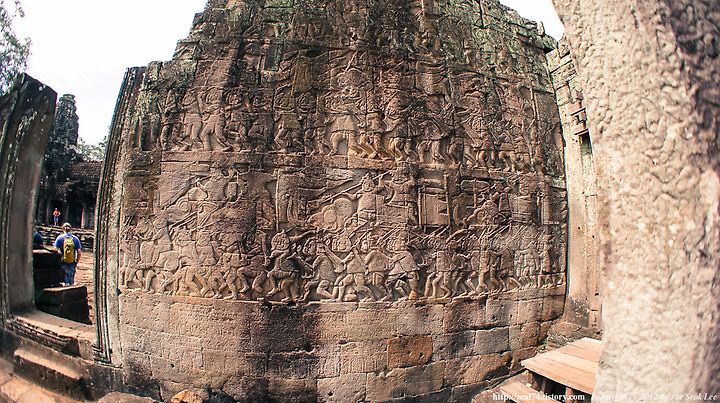 http://zeal74.tistory.com/ copyright(c) 2012 by Jae Seok Lee